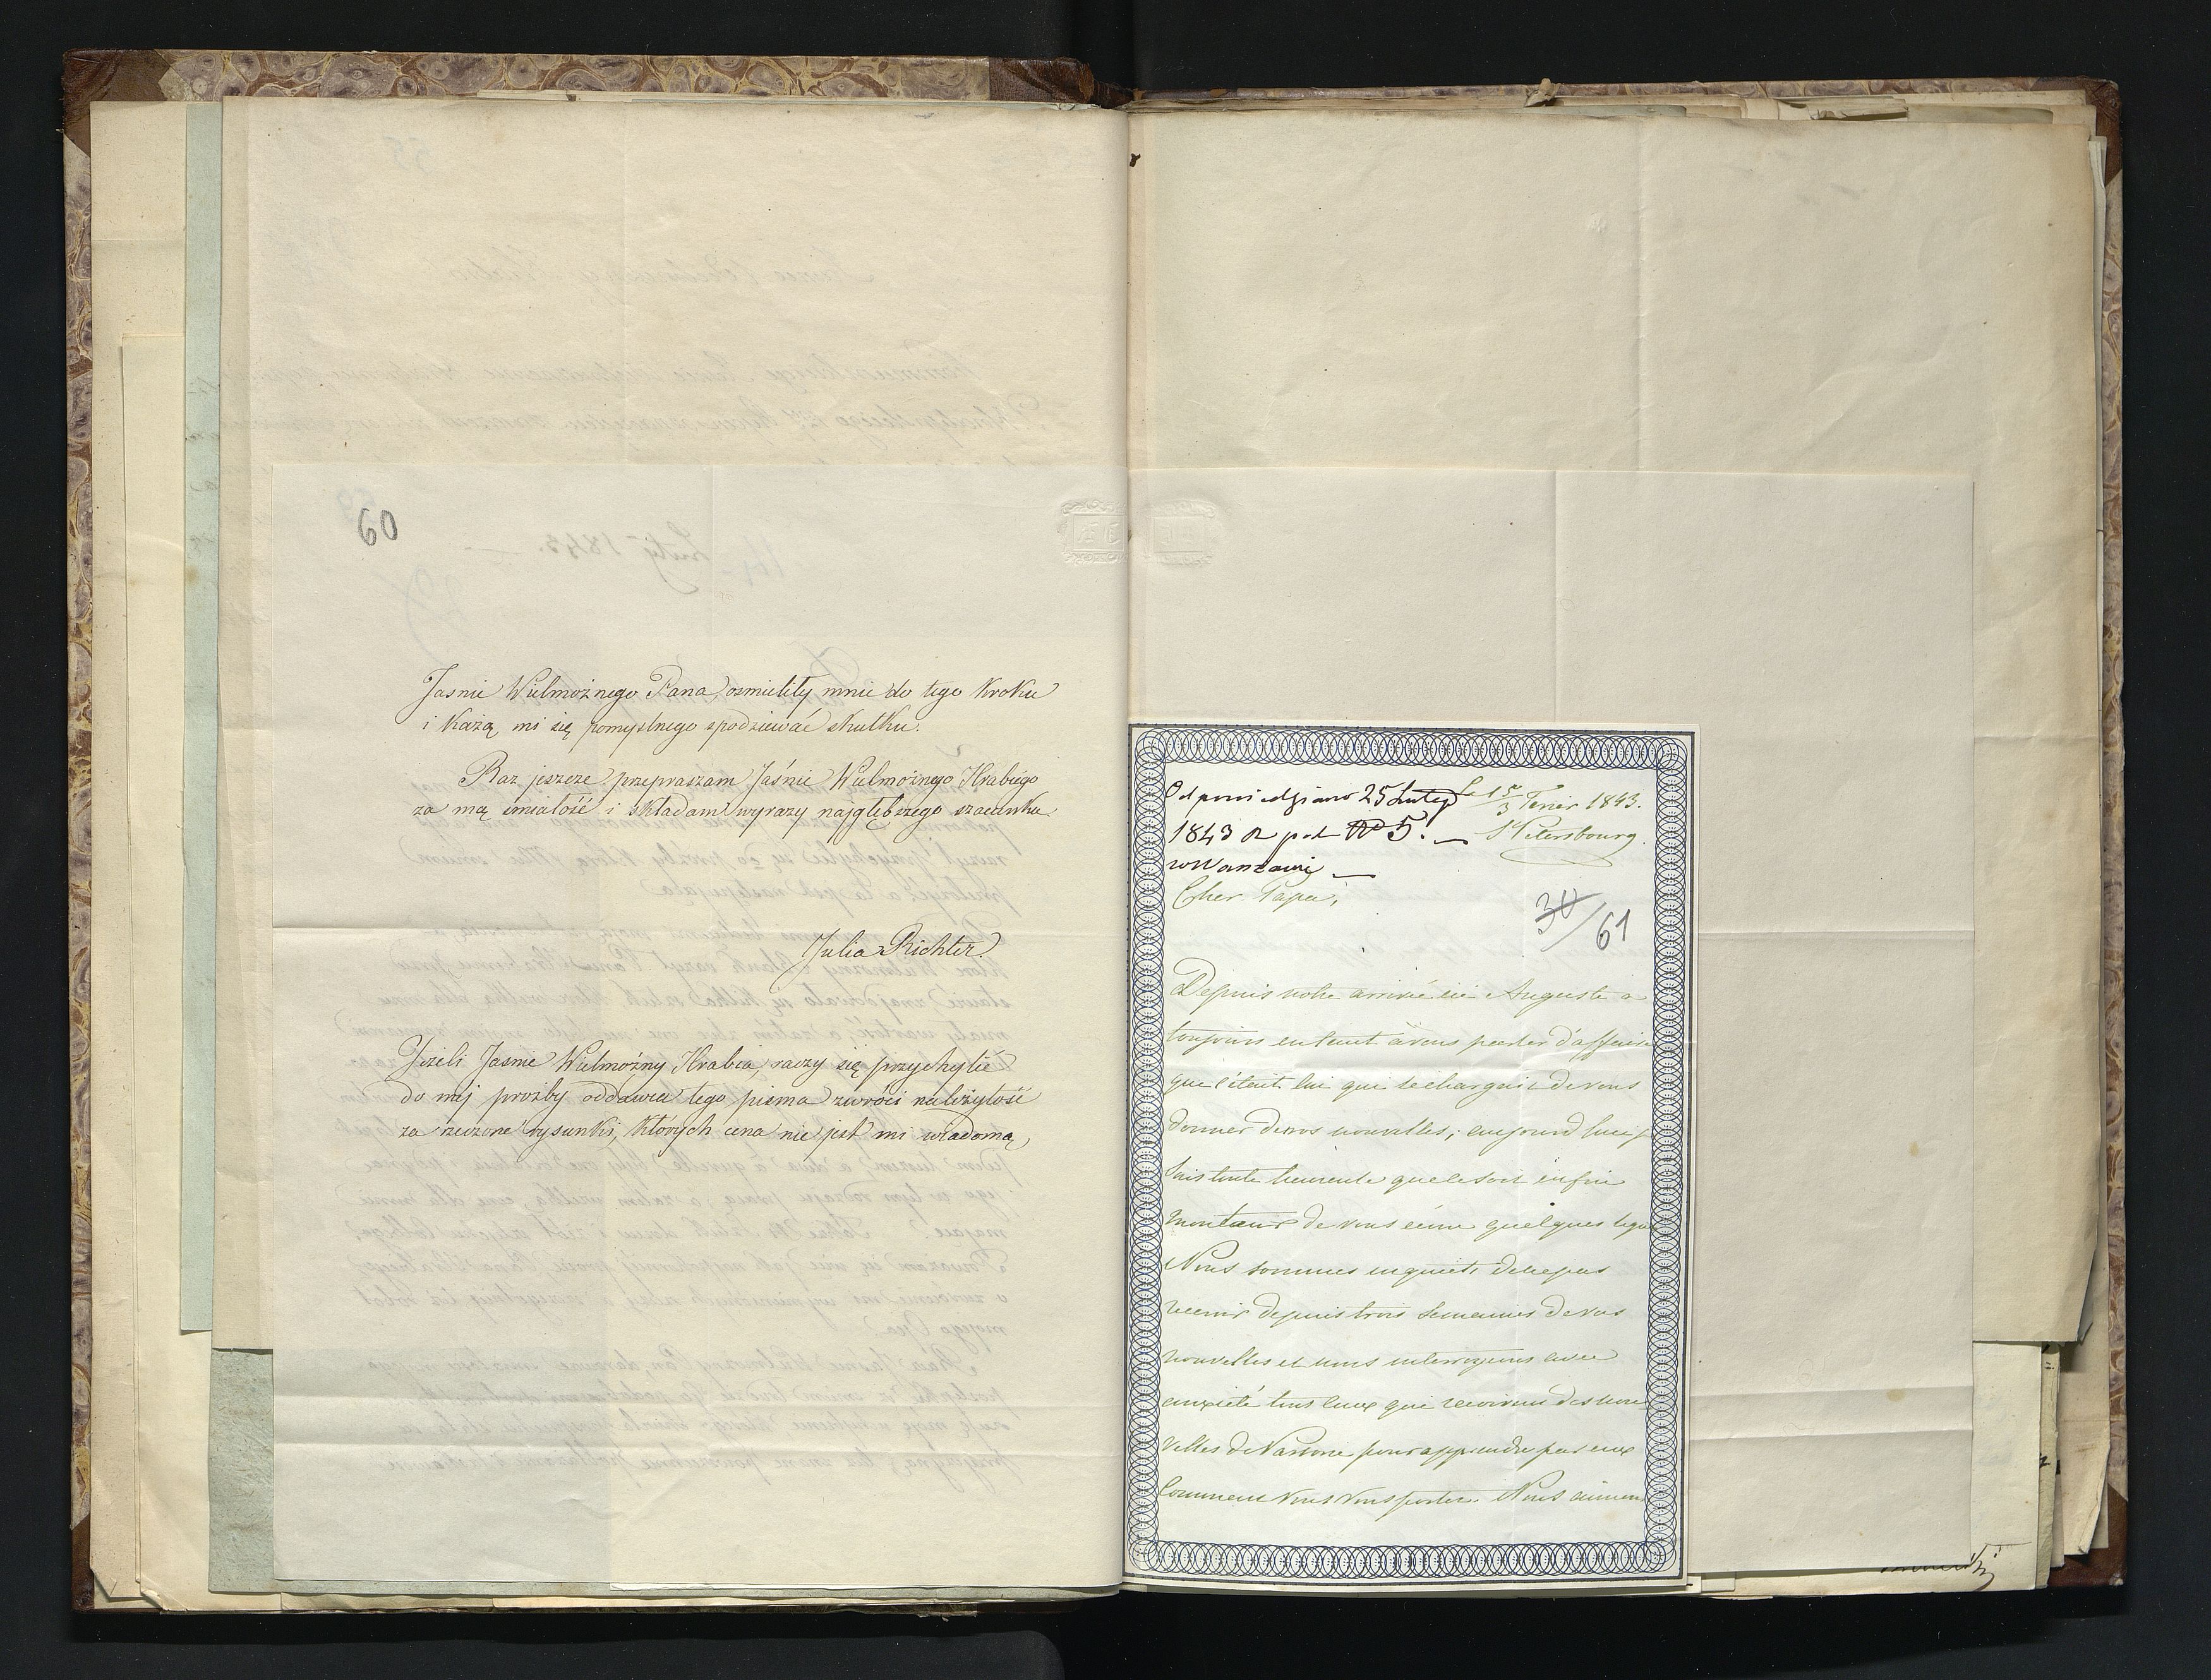 60
Jasnie Wielmożnego Pana osmieliły mnie do tego kroku
i każą mi się pomyslnego spodziewać skutku.
Raz jeszcze przepraszam Jaśnie Wielmożnego Hrabiego
za mą śmiałość i składam wyrazy najgłębszego szacunku.
Julia Richter.
Jeżeli Jasnie Wielmożny Hrabia, raczy się przychylić
do mej prozby oddawca tego pisma zwróci należytość
za rzeczone rysunki, których cena nie jest mi wiadomą,
Odpowiedziano 25 Lutego
1843 R pod No 5. —
w Warszawie —
Le 15/3 Fevrier 1843.
St Petersbourg.
Cher Papa,
30/61
Depuis notre arrivée ici Auguste a
toujours en tenant à vous parler d'affaires
que c'était lui qui se chargait de vous
donner de nos nouvelles; aujourd'hui je
suis toute heureuse que ce soit enfin
mon tour de vous écrire quelques lignes
Nous sommes inquiets de ne pas
recevoir depuis trois semaines de vos
nouvelles et nous interrogeons avec
anxiété tous ceux qui reçoivent des nou-
velles de Varsovie pour apprendre par eux
comment vous vous portez. Nous aimons